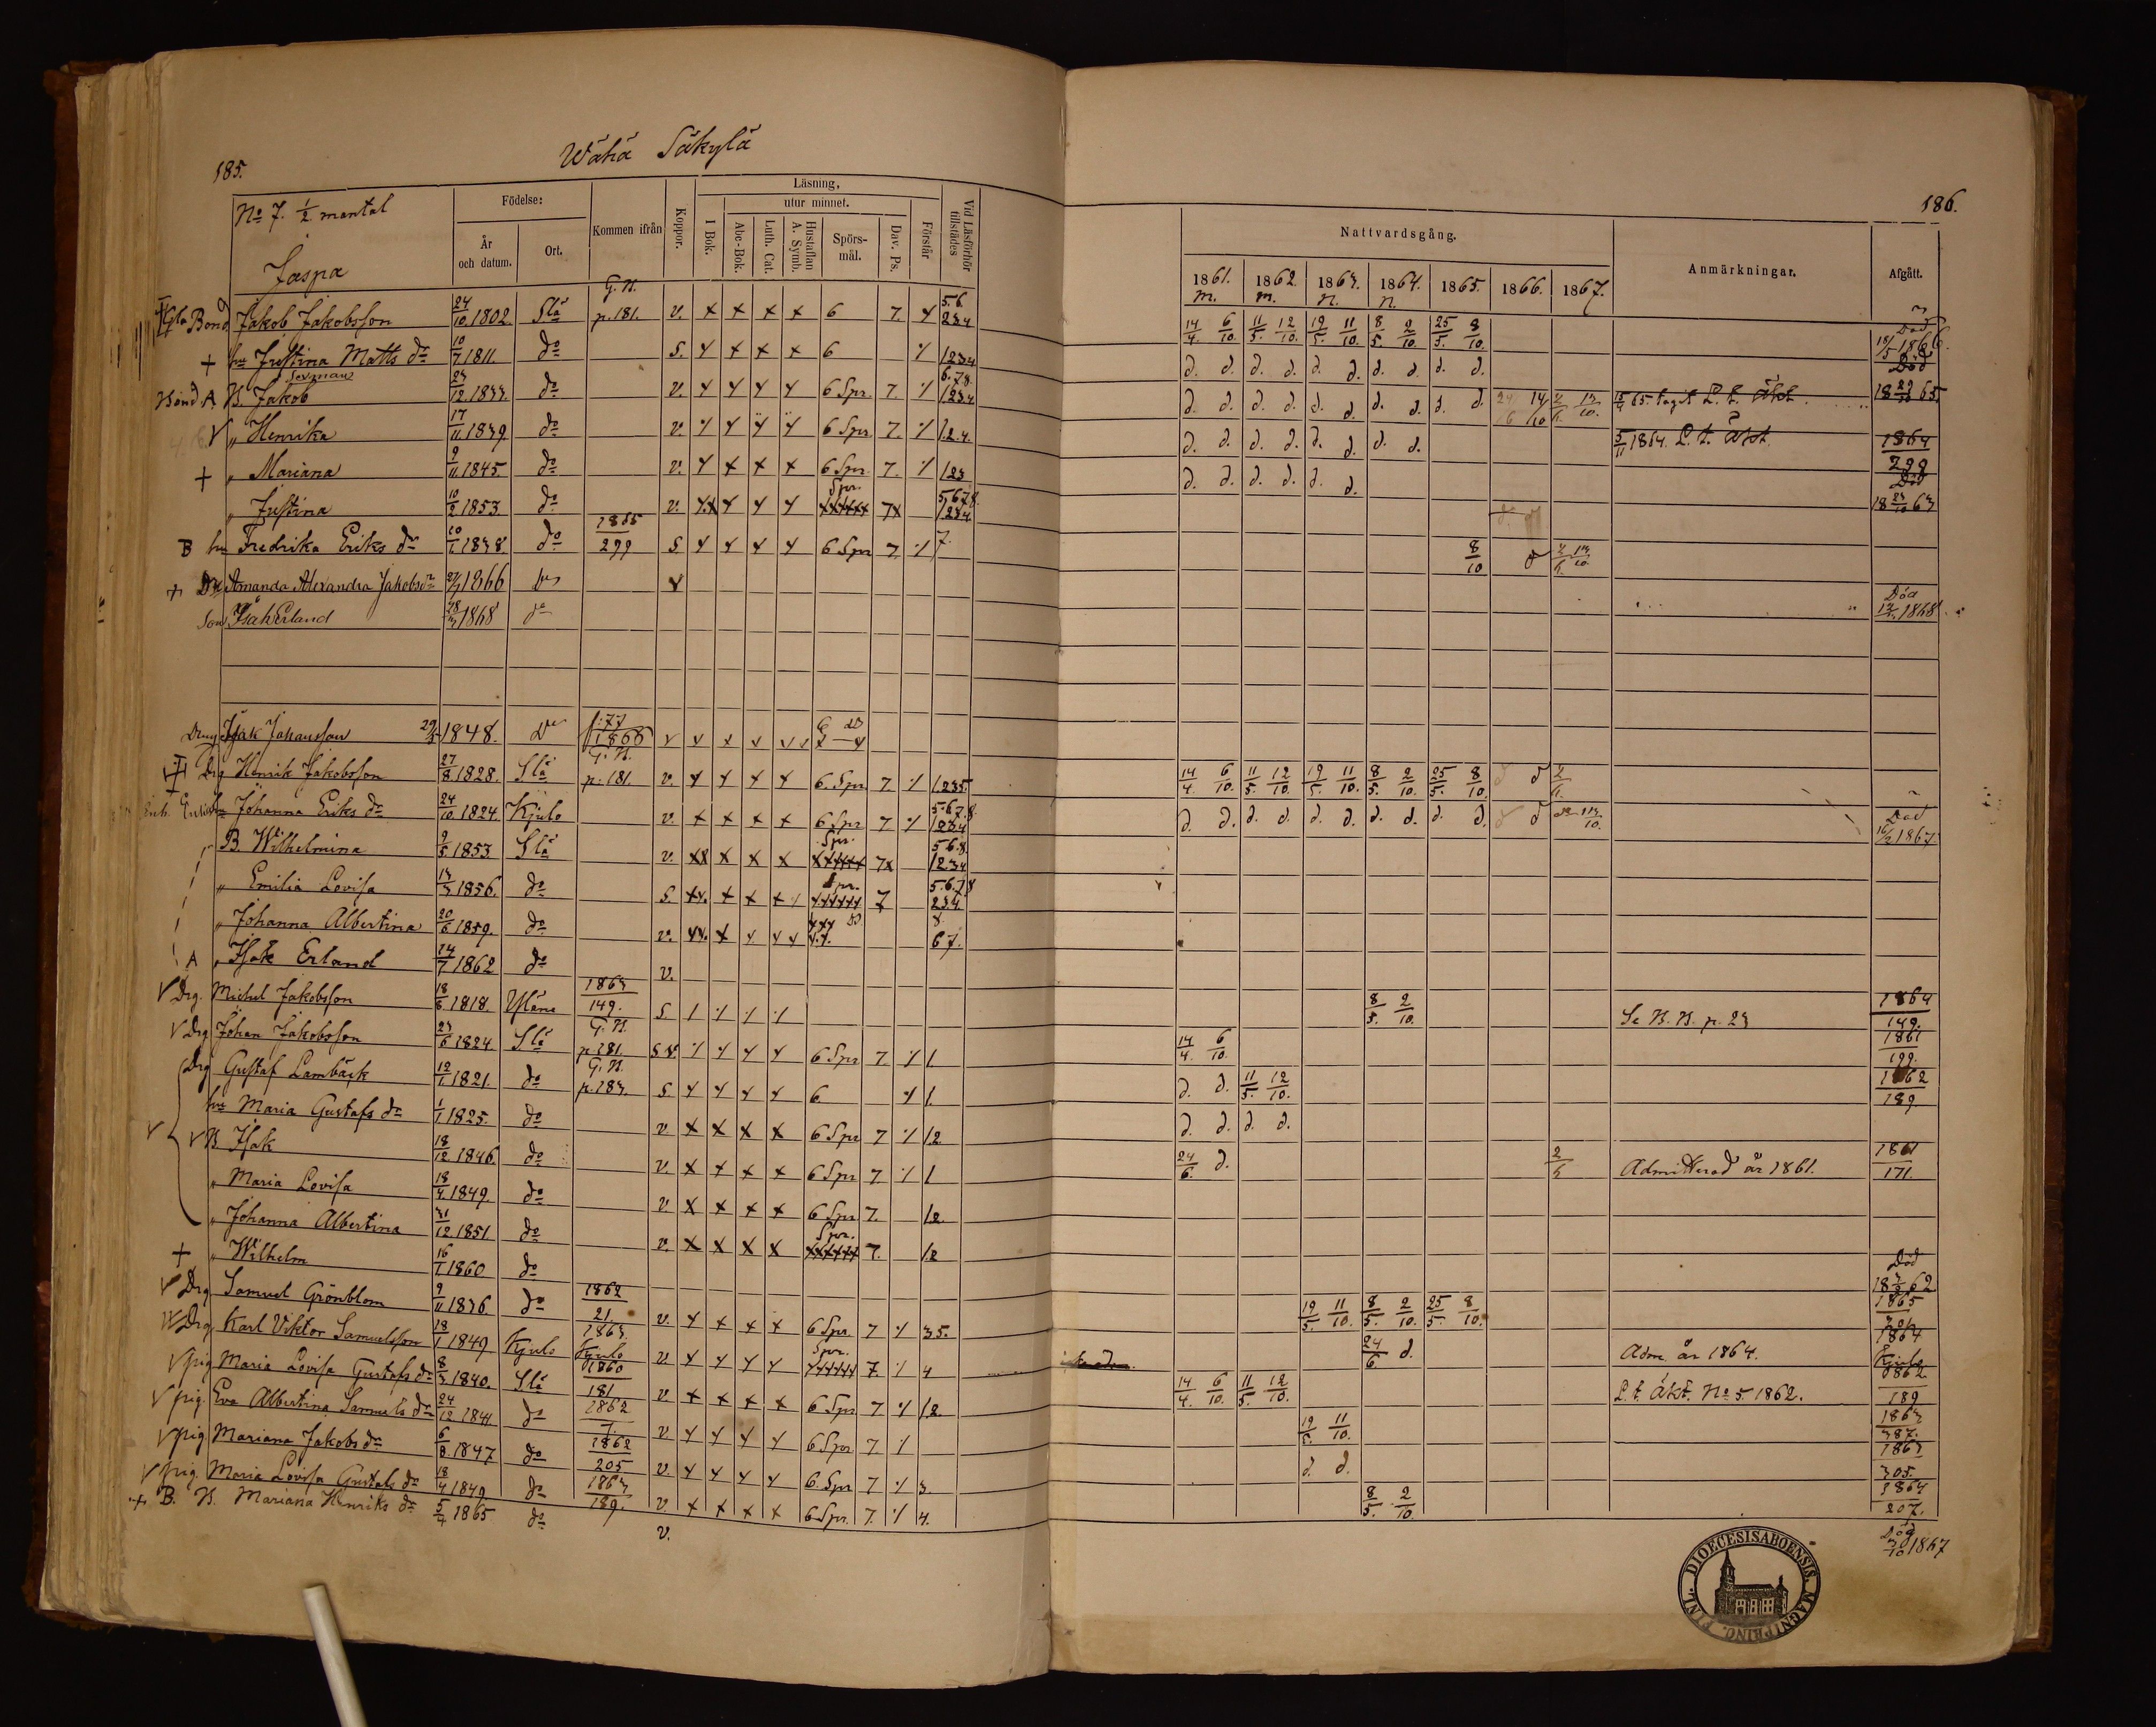 185.
Wähä Säkylä
No 7. 1/2 mantal
Jaspa
Födelse:
År och datum.
Ort.
Kommen ifrån
Koppor.
Läsning,
I Bok.
utur minnet.
Abc-Bok.
Luth. Cat.
Hustaflan A. Symb.
Spörs-mål.
Dav. Ps.
Förstår
Vid Läsförhör tillstädes
186.
Nattvardsgång.
1861. m.
1862. m.
1863. n.
1864. n.
1865.
1866.
1867.
Anmärkningar.
Afgått.
Gla Bond Jakob Jakobsson 24/10. 1802. Slä G. B. p. 181. v. 6 7. 5.6. 234 14/4. 6/10. 11/5. 12/10. 19/5. 11/10. 8/5. 2/10. 25/5. 8/10. Död 18/5 1866.
+ hu Justina Matts dr 10/7. 1811. do S. 6 1234 d. d. d. d. d. d. d. d. d. d. Död 18 23/10 65.
Bond A. B. Jakob 23/12. 1833. do v. 6 Spr. 7. 6.7.8. 1234 d. d. d. d. d. d. d. d. d. d. 65. tagit L. t. äkt.
V „ Henrika 17/11 1839 do v. 6 Spr 7. 1.2.4. d. d. d. d. d. d. d. d. 5/11 1864. L. t. äkt. 1864 299
+ „ Mariana 9/11. 1845. do v. 6 Spr. 7. 123 d. d. d. d. d. d. Död 18 23/10 63
„ Justina 10/2 1853. do v. Spr. 7x 5,6,7,8. 1234
B hu Fredrika Eriks dr 20/1. 1838. do 1865 299 S. 6 Spr 7. 7. 8/10 d 2/6. 13/10.
+ Dr Amanda Alexandra Jakobsdr 1866 Död 1868
Son Isak Erland 28/3 1868 do
Dreng Isak Johansson 29/3 1848. do p. 77 1868
Drg Henrik Jakobsson 27/8. 1828. Slä G. B. p. 181. v. 6. Spr. 7. 1.235. 14/4. 6/10. 11/5. 12/10. 19/5. 11/10. 8/5. 2/10. 25/5. 8/10. d d 2/6. Död 16/2 1867.
Enk. hu Johanna Eriks dr 24/10. 1824. Kjulo v. 6 Spr 7 5.6.7.8. 1234 d. d. d. d. d. d. d. d. d. d. d d 13/10.
B. Wilhelmina 9/5. 1853. Slä v. Spr. 7x 5 6.8. 1234
„ Emilia Lovisa 13/3 1856. do S. Spr. 7 5.6.7.8 234
„ Johanna Albertina 20/6 1859. do v. 67.
A „ Isak Erland 14/7 1862 do v.
V Drg. Michel Jakobsson 18/8 1818. Yläne 1863 149. S. 8/5. 2/10. Se B. B. p. 23 1864 149.
V Drg Johan Jakobsson 23/6 1824. Slä G. B. p. 181. S. v. 6 Spr 7. 1. 14/4. 6/10. 1861 199.
Drg Gustaf Lambäck 12/1. 1821. do G. B. p. 183. S. 6. 1. d. d. 11/5. 12/10. 1862 189
hu Maria Gustafs dr 1/1 1825. do v. 6 Spr 7 1.2 d. d. d. d.
V B. Isak 18/12. 1846. do v. 6 Spr 7 1 24/6. d. 2/6 Admitterad år 1861. 1861 171.
„ Maria Lovisa 18/4. 1849. do v. 6 Spr 7. 1.2.
„ Johanna Albertina 31/12 1851 do v. Spr. 7. 1.2
+ „ Wilhelm 16/1 1860 do Död 18 3/3 62
V Drg Samuel Grönblom 9/11 1836 do 1862 21. v. 6 Spr. 7 35. 19/5. 11/10. 8/5. 2/10. 25/5. 8/10. 1865
Drg Karl Viktor Samuelsson 18/1 1849 Kjulo 1863. Kjulo v. Spr. 7. 4 24/6. d. Adm. år 1864. 1864 Kjulo
V pig Maria Lovisa Gustafs dr 8/3 1840. Slä 1860 181 v. 6 Spr 7 1.2. 14/4. 6/10. 11/5. 12/10. L. t. äkt. No 5 1862. 1862. 189
V pig. Eva Albertina Samuels dr 24/12. 1841 do 1862 v. 6 Spr 7 19/5. 11/10. 1863 387.
V pig Mariana Jakobs dr 6/8. 1847 do 1862 205 v. 6. Spr 7 3 d. d. 1863 305.
V pig. Maria Lovisa Gustafs dr 18/4 1849 do 1863 189. v. 6 Spr. 7. 4. 8/5. 2/10. 1864 207.
+ B. B. Mariana Henriks dr 5/4 1865 do v. Död 3/10 1867
DIOECESIS ABOENSIS. MAGNI PRINC. FINL.